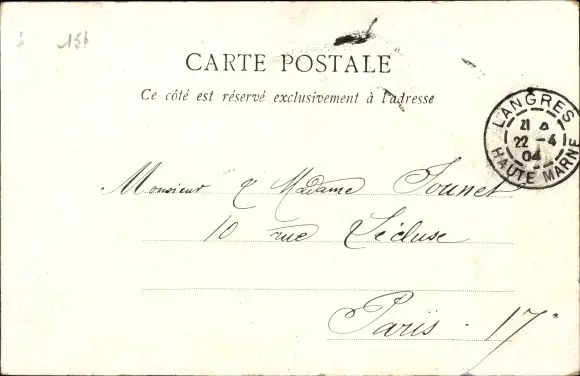 15f
CARTE POSTALE
Ce côté est réservé exclusivement à l'adresse
LANGRES
22 -4
04
HAUTE MARNE
Monsieur & Madame Jounet
10 rue Lécluse
Paris . 17e